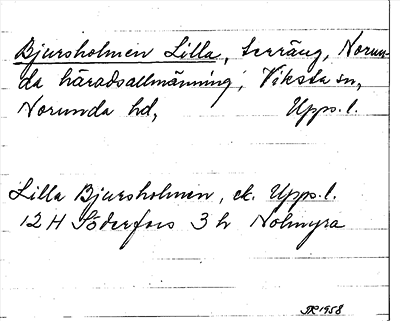 Bjursholmen Lilla, terräng, Norun-
da häradsallmänning, Viksta sn,
Norunda hd, Upps. l.
Lilla Bjursholmen, ek. Upps. l.
12 H Söderfors 3 h Nolmyra
1958